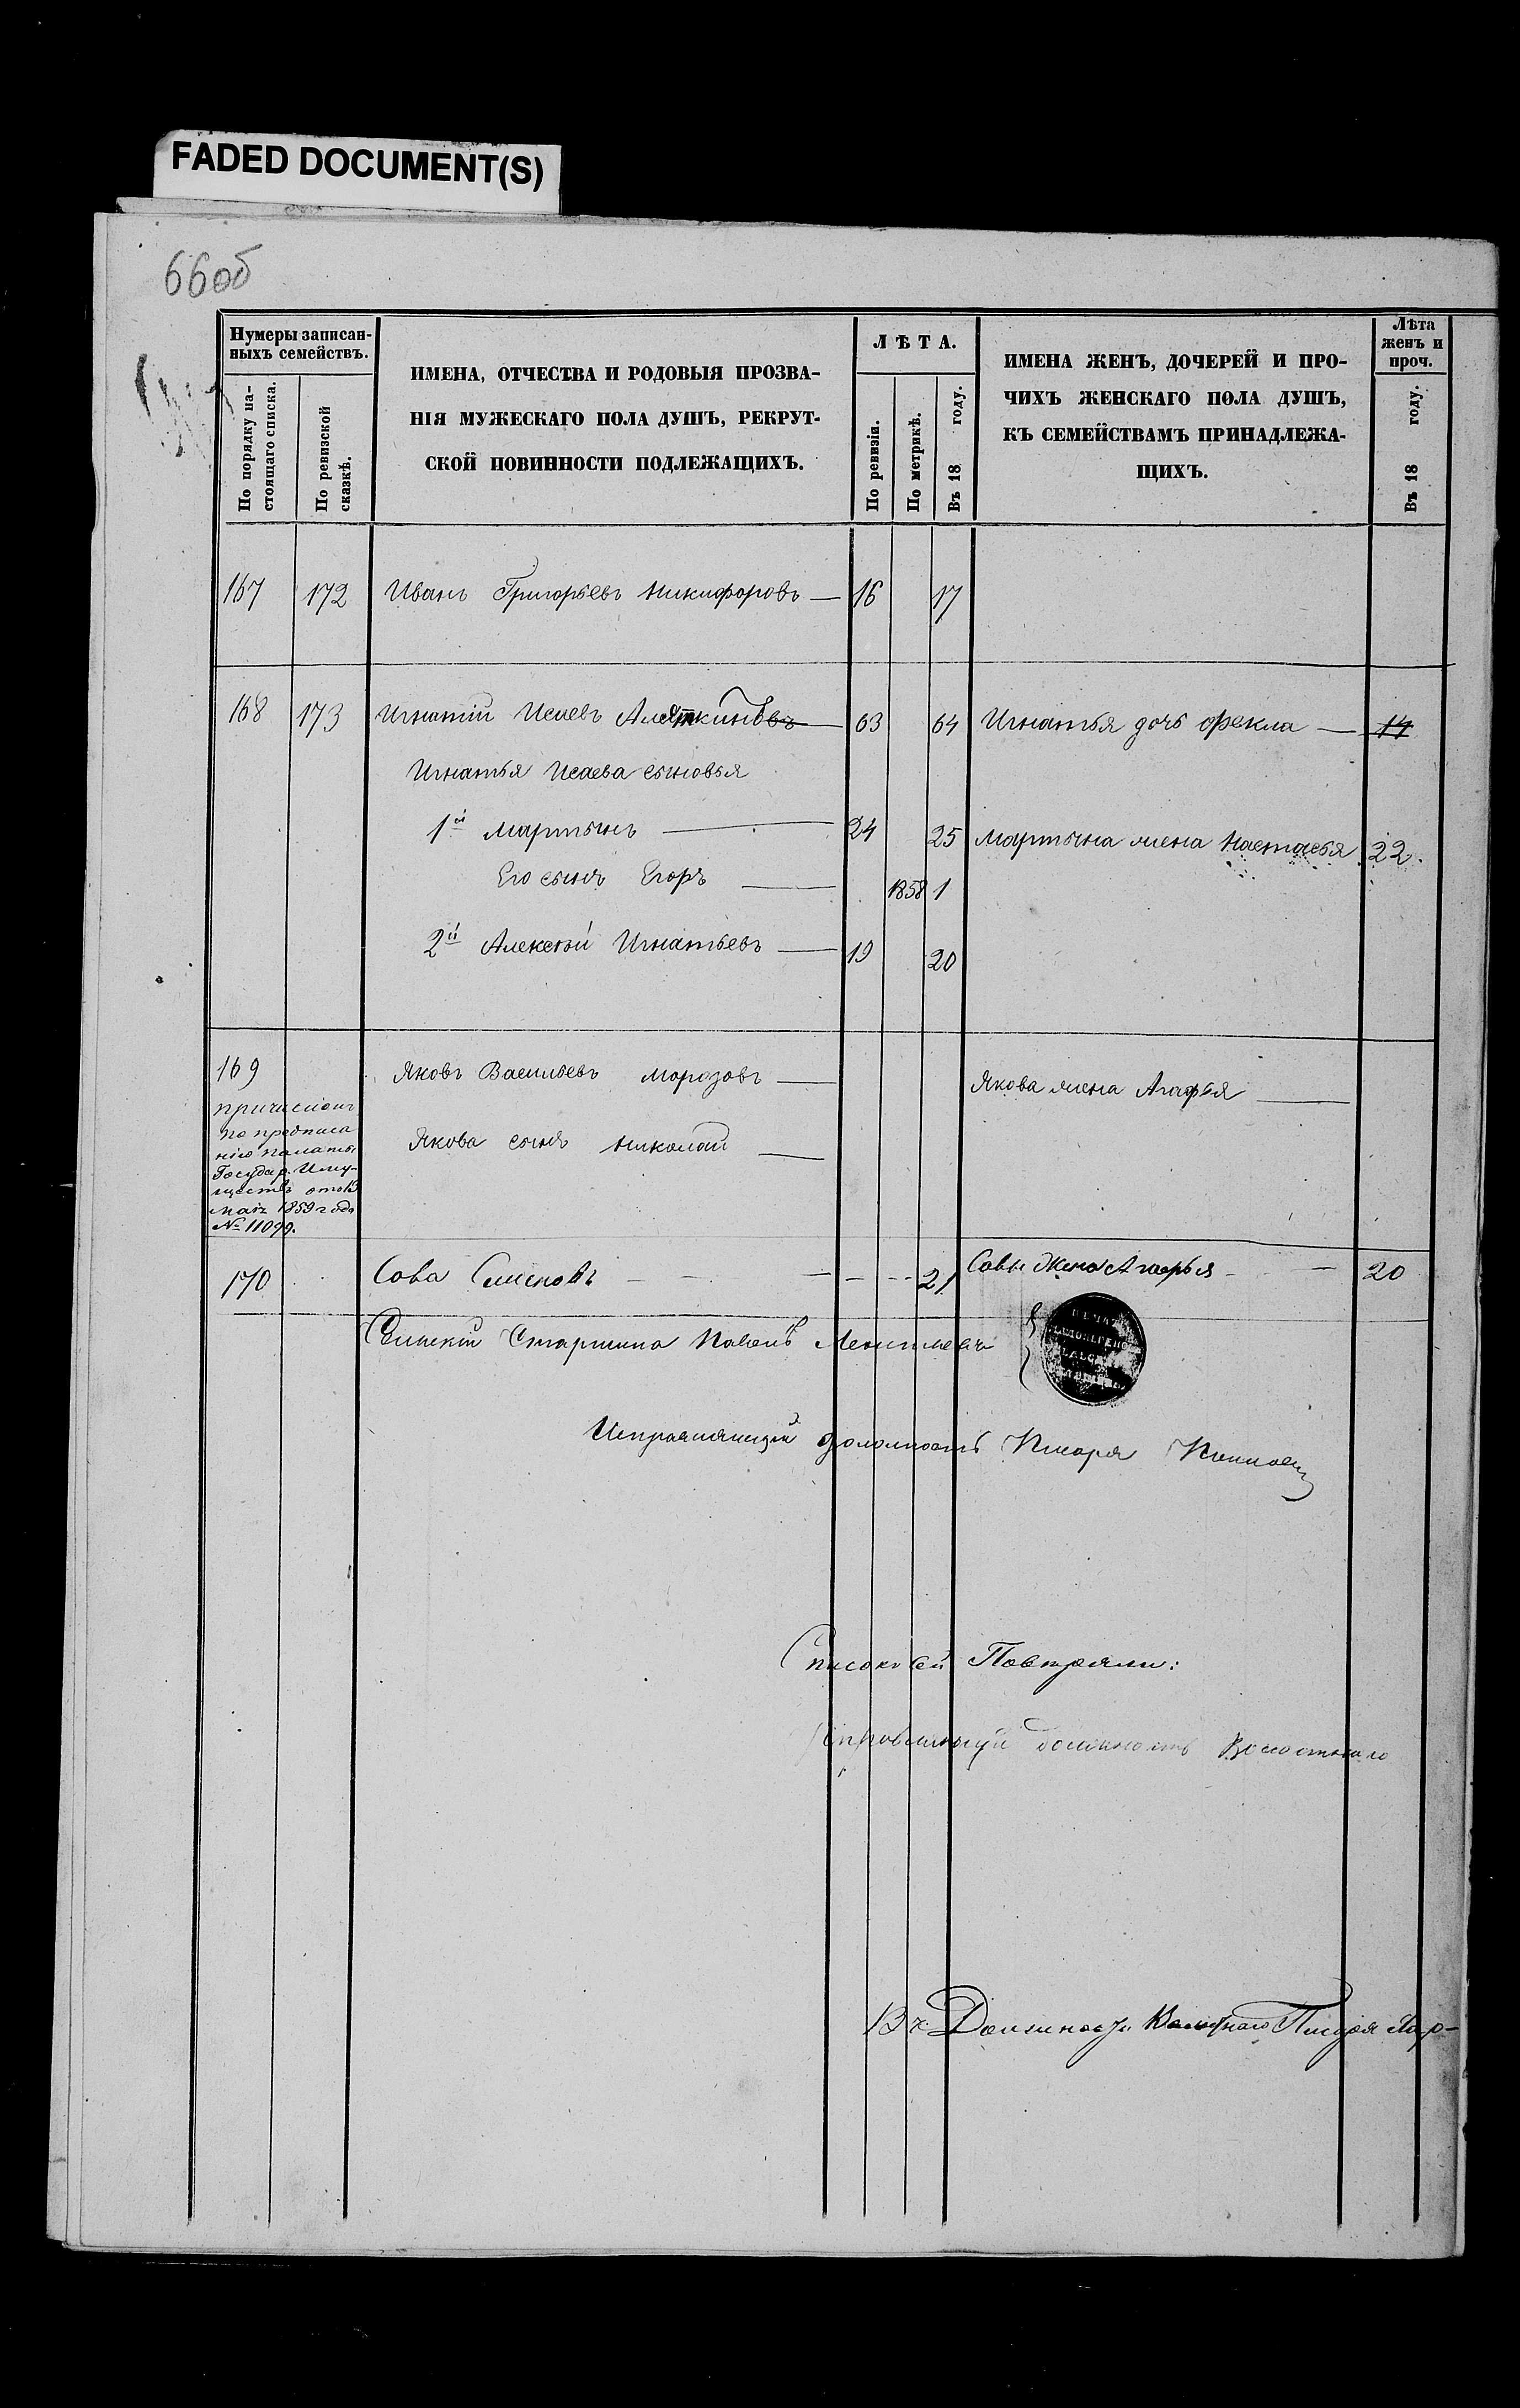 FADED DOCUMENT(S)
66об
Нумеры записан-
ныхъ семействъ.
По порядку на-
стоящаго списка.
По ревизской
сказкѣ.
ИМЕНА, ОТЧЕСТВА И РОДОВЫЯ ПРОЗВА-
НІЯ МУЖЕСКАГО ПОЛА ДУШЪ, РЕКРУТ-
СКОЙ ПОВИННОСТИ ПОДЛЕЖАЩИХЪ.
ЛѢТА.
По ревизіи.
По метрикѣ.
Въ 18 году.
ИМЕНА ЖЕНЪ, ДОЧЕРЕЙ И ПРО-
ЧИХЪ ЖЕНСКАГО ПОЛА ДУШЪ,
КЪ СЕМЕЙСТВАМЪ ПРИНАДЛЕЖА-
ЩИХЪ.
Лѣта
женъ и
проч.
Въ 18 году.
167 172 Иванъ Григорьевъ Никифоровъ — 16 17
168 173 Игнатій Исаевъ 63 64 Игнатья дочь Фекла — 14
Игнатья Исаева сыновья
1й Мартынъ — 24 25 Мартына жена Настасья 22
Его сынъ Егоръ — 1858 1
2й Алексѣй Игнатьевъ — 19 20
169 Яковъ Васильевъ Морозовъ — Якова жена Агафья —
причисленъ
по предписа
нію палаты
Государ. Иму-
ществъ отъ 13
мая 1859 года
№ 11099.
Якова сынъ Николай —
170 Сова Семеновъ — 21 Совы Жена Агафья — 20
Сельскій Старшина Павелъ Леонтьевъ
Исправляющій должность Писаря
Списокъ сей Повѣряли:
Исправляющій должность Волостнаго
Должность Волостнаго Писаря